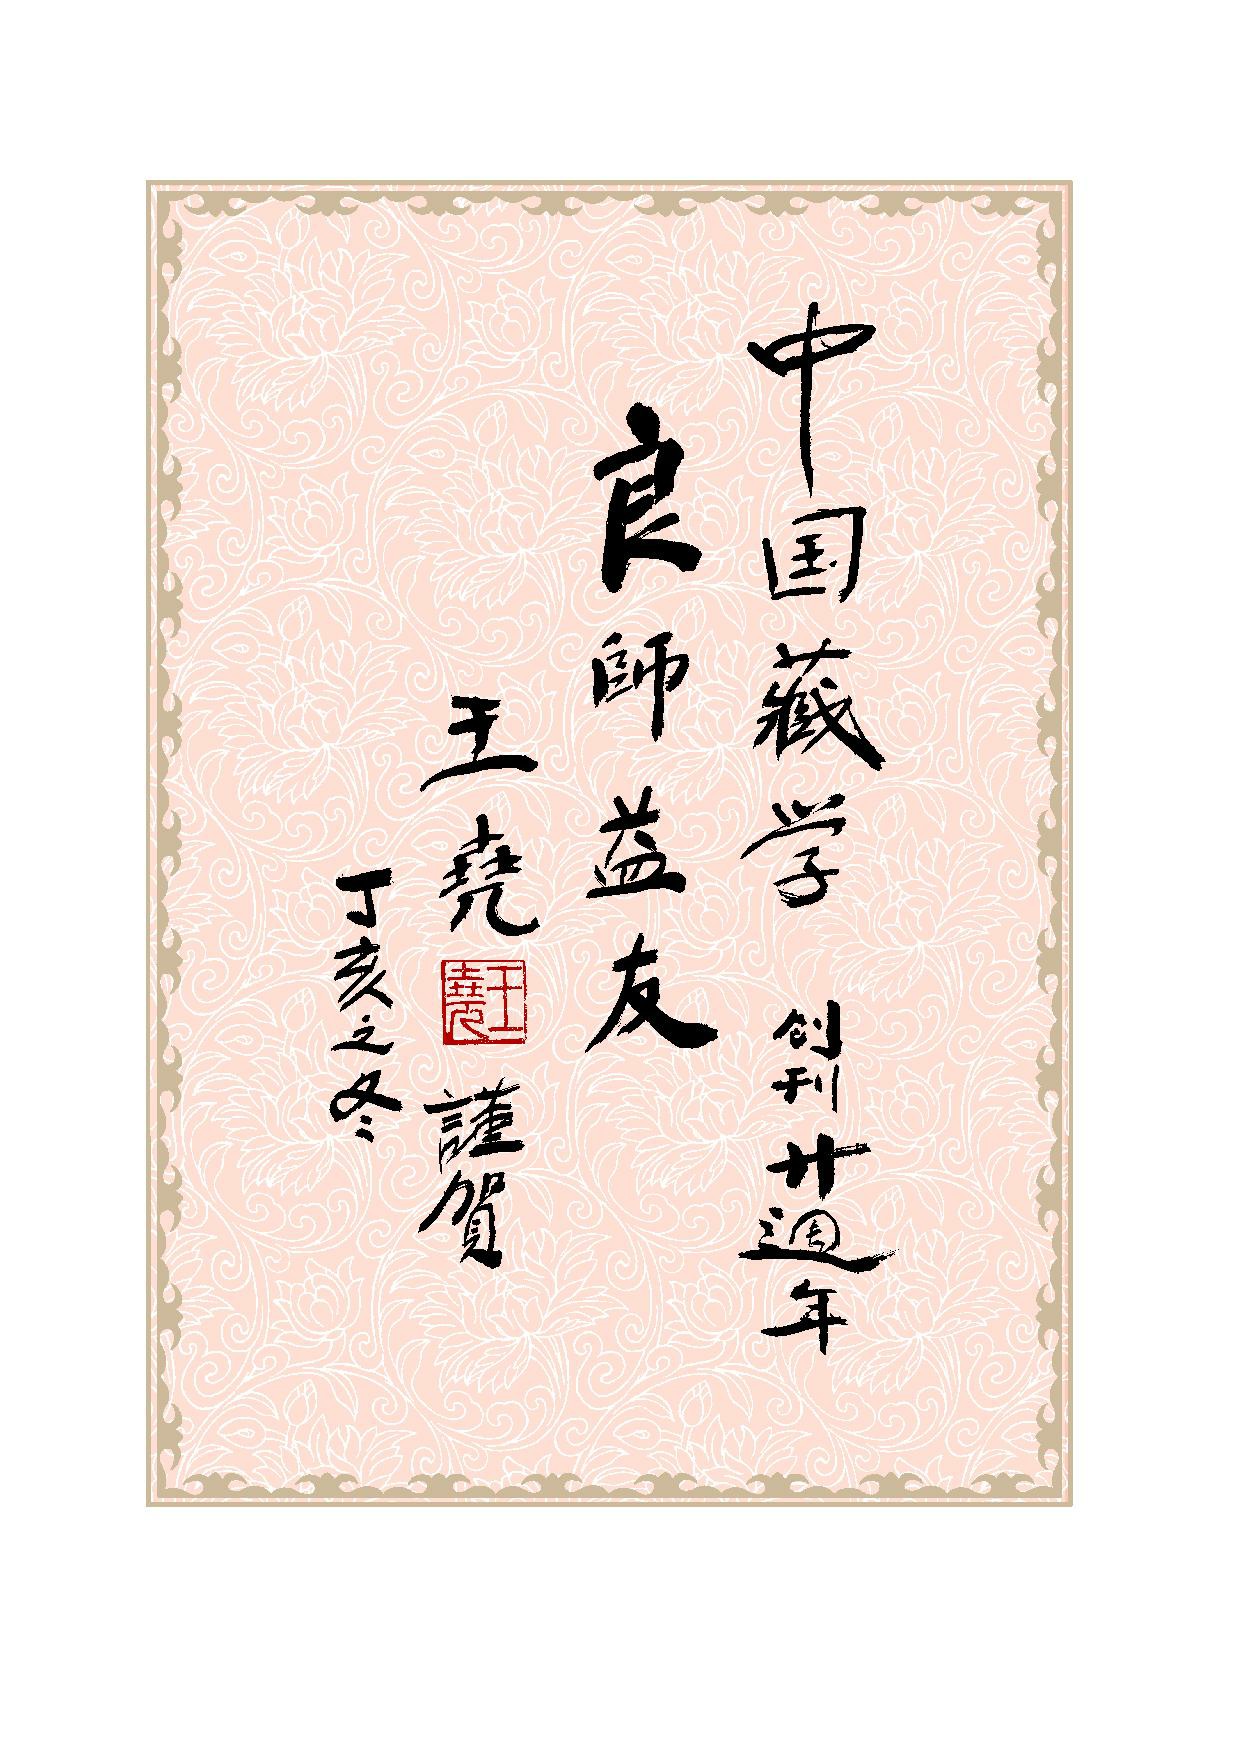 中国藏学 创刊廿週年
良師益友
王堯 王堯 謹賀
丁亥之冬